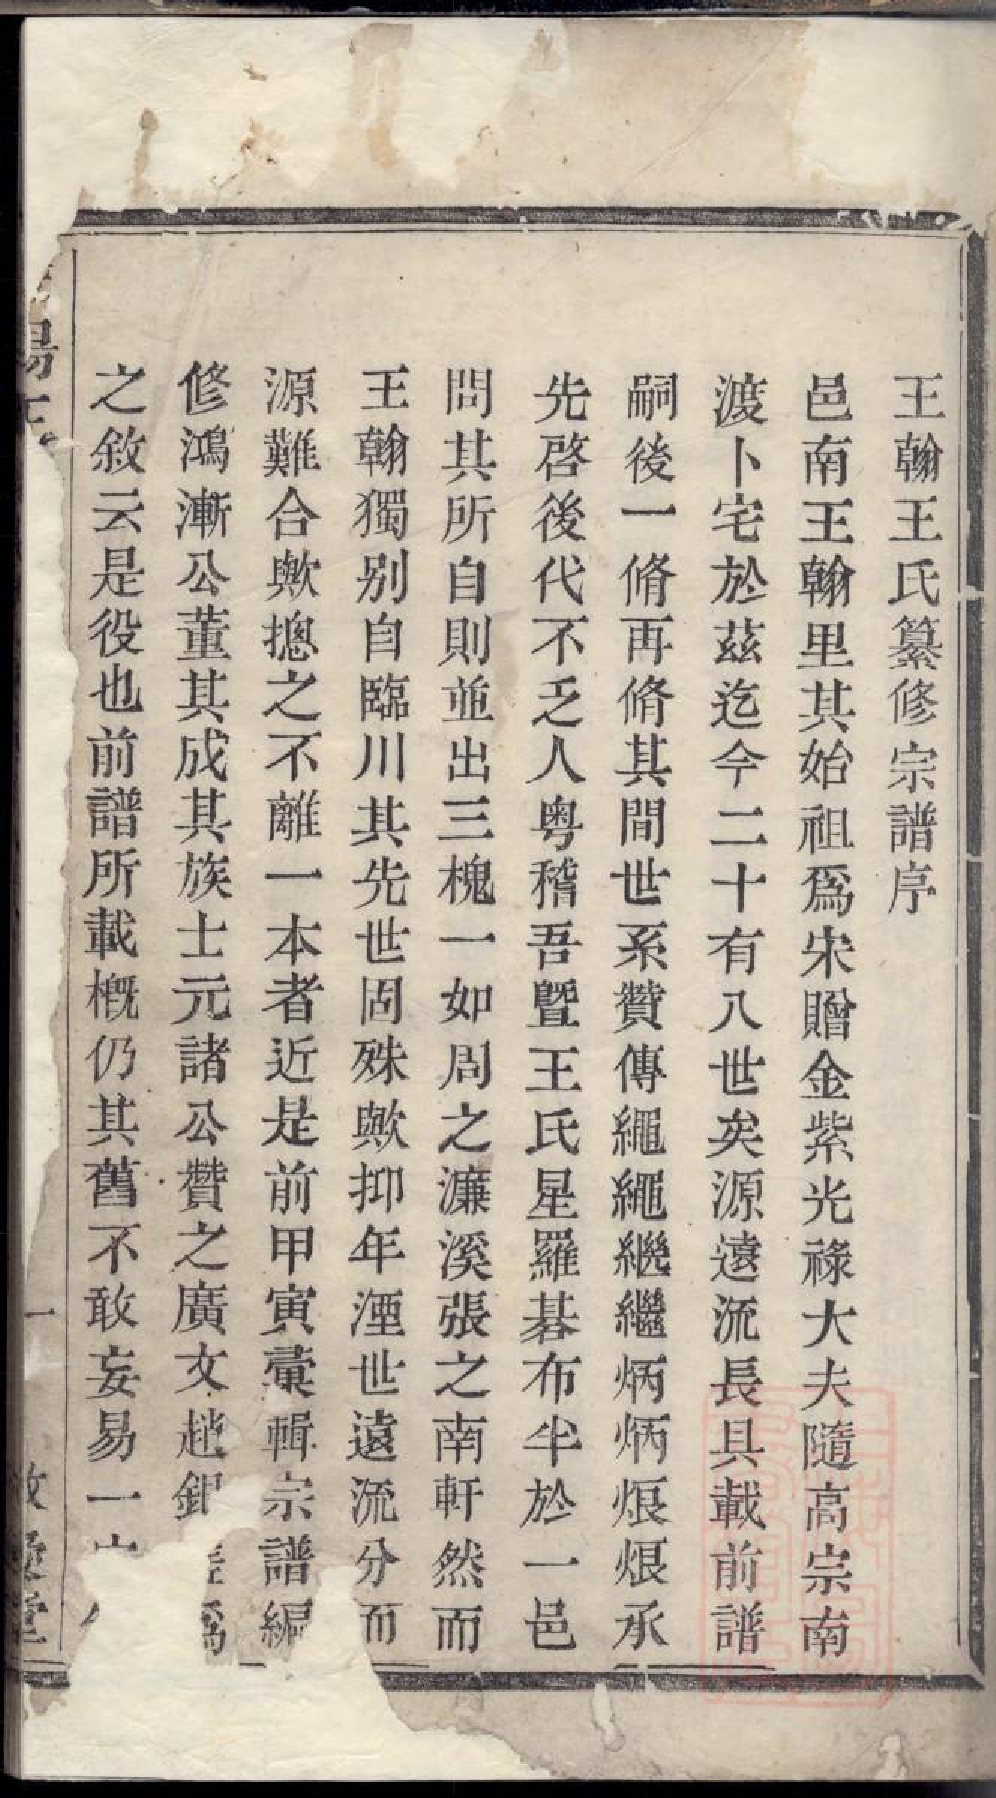 王翰王氏纂修宗譜序
邑南王翰里其始祖爲宋贈金紫光祿大夫隨高宗南
渡卜宅於茲迄今二十有八世矣源遠流長具載前譜
嗣後一脩再脩其間世系贊傳繩繩繼繼炳炳烺烺承
先啓後代不乏人粤稽吾暨王氏星羅碁布半於一邑
問其所自則並出三槐一如周之濂溪張之南軒然而
王翰獨别自臨川其先世固殊歟抑年湮世遠流分而
源難合歟摠之不離一本者近是前甲寅彚輯宗譜編
修鴻漸公董其成其族士元諸公贊之廣文趙銀爲
之敘云是役也前譜所載槪仍其舊不敢妄易一
陽王
一
敘堂